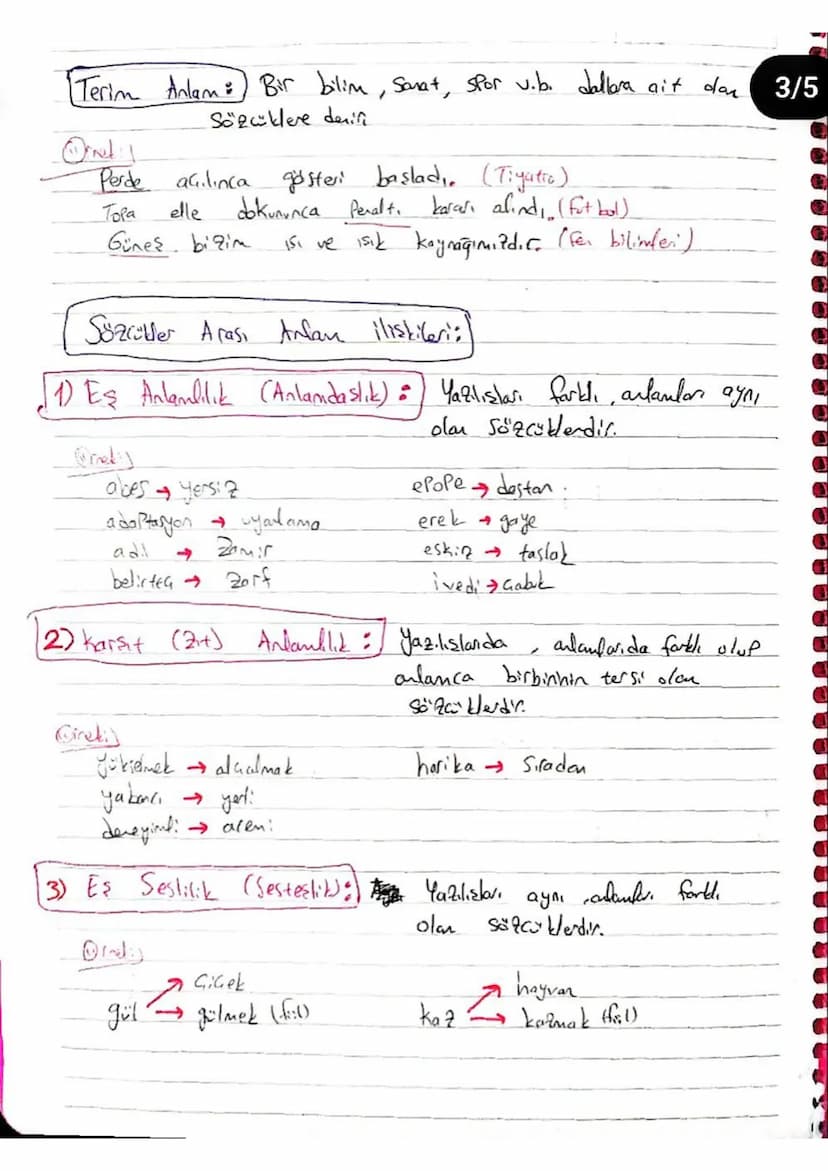 Terim Anlam: Bir bilim, sanat, spor v.b. dallara ait olan
3/5
sözcüklere denir
Örnek;
Perde açılınca gösteri başladı. (Tiyatro)
Topa elle dokununca Penaltı kararı alındı. (futbol)
Güneş bizim ısı ve ışık kaynağımızdır. (Fen bilimleri)
Sözcükler Arası Anlam ilişkileri:
1) Eş Anlamlılık (Anlamdaşlık): Yazılışları farklı, anlamları aynı
olan sözcüklerdir.
Örnek;
abes → yersiz epope → destan.
adaptasyon → uyarlama erek → gaye
adıl → Zamir eskiz → taslak
belirteç → Zarf ivedi → Çabuk
2) Karşıt (Zıt) Anlamlılık: Yazılışlarıda, anlamlarıda farklı olup
anlamca birbirinin tersi olan
sözcüklerdir.
Örnek;
yükselmek → alçalmak harika → Sıradan
yabancı → yerli
deneyimli → acemi
3) Eş Seslilik (Sesteşlik): Yazılışları aynı, anlamları farklı
olan sözcüklerdir.
Örnek;
gül → Çiçek
→ gülmek (fiil)
kaz → hayvan
→ kazmak (fiil)